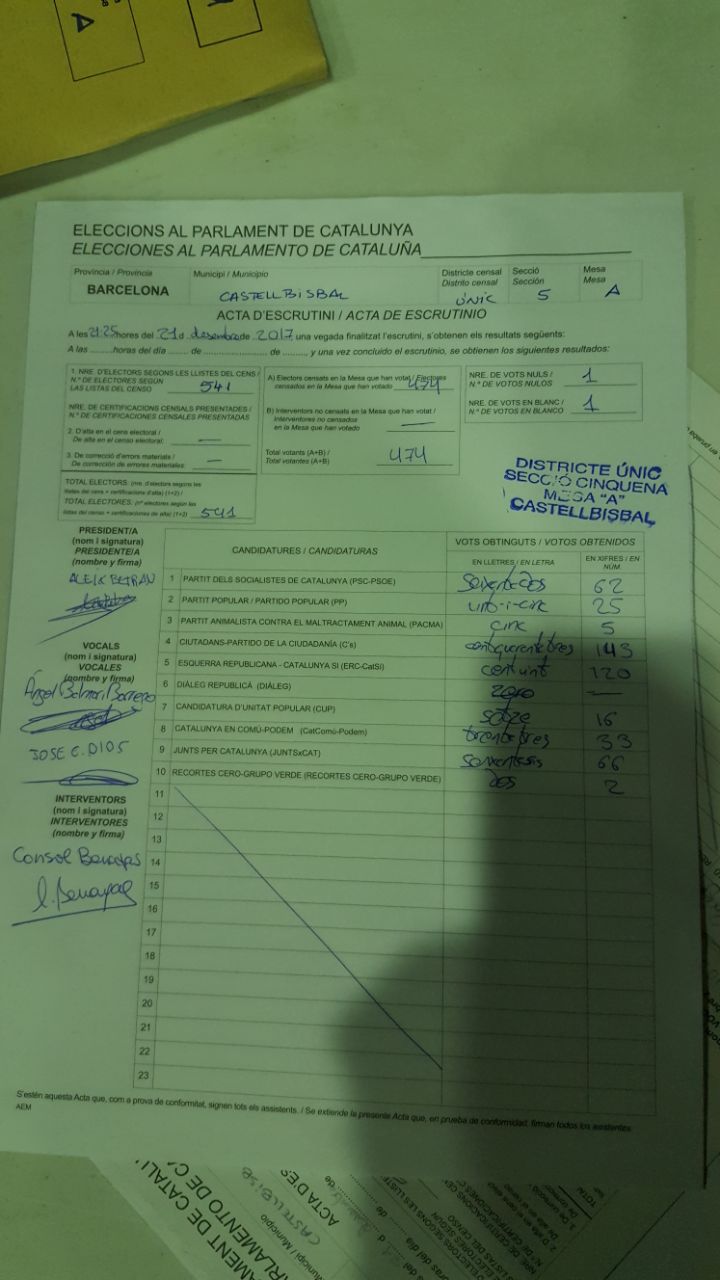 A
ELECCIONS AL PARLAMENT DE CATALUNYA
ELECCIONES AL PARLAMENTO DE CATALUÑA
Província / Provincia
BARCELONA
Municipi / Municipio
CASTELLBISBAL
Districte censal
Distrito censal
ÚNIC
Secció
Sección
5
Mesa
Mesa
A
ACTA D'ESCRUTINI / ACTA DE ESCRUTINIO
A les 21:25 hores del 21 d desembre de 2017 una vegada finalitzat l'escrutini, s'obtenen els resultats següents:
A las ........horas del día ........ de ........................ de ........, y una vez concluido el escrutinio, se obtienen los siguientes resultados:
1. NRE. D'ELECTORS SEGONS LES LLISTES DEL CENS /
N.º DE ELECTORES SEGÚN
LAS LISTAS DEL CENSO 541
NRE. DE CERTIFICACIONS CENSALS PRESENTADES /
N.º DE CERTIFICACIONES CENSALES PRESENTADAS
2. D'alta en el cens electoral /
De alta en el censo electoral: —
3. De correcció d'errors materials /
De corrección de errores materiales: —
TOTAL ELECTORS: (nre. d'electors segons les
llistes del cens + certificacions d'alta) (1+2) /
TOTAL ELECTORES: (nº electores según las
listas del censo + certificaciones de alta) (1+2) 541
A) Electors censats en la Mesa que han votat / Electores
censados en la Mesa que han votado 474
B) Interventors no censats en la Mesa que han votat /
Interventores no censados
en la Mesa que han votado —
Total votants (A+B) /
Total votantes (A+B) 474
NRE. DE VOTS NULS /
N.º DE VOTOS NULOS 1
NRE. DE VOTS EN BLANC /
N.º DE VOTOS EN BLANCO 1
DISTRICTE ÚNIC
SECCIÓ CINQUENA
MESA "A"
CASTELLBISBAL
PRESIDENT/A
(nom i signatura)
PRESIDENTE/A
(nombre y firma)
ALEIX BELTRAN
VOCALS
(nom i signatura)
VOCALES
(nombre y firma)
Àngel Borrero
JOSE C. DIOS
INTERVENTORS
(nom i signatura)
INTERVENTORES
(nombre y firma)
Consol
CANDIDATURES / CANDIDATURAS
VOTS OBTINGUTS / VOTOS OBTENIDOS
EN LLETRES / EN LETRA
EN XIFRES / EN NÚM.
1 PARTIT DELS SOCIALISTES DE CATALUNYA (PSC-PSOE) seixantados 62
2 PARTIT POPULAR / PARTIDO POPULAR (PP) vint-i-cinc 25
3 PARTIT ANIMALISTA CONTRA EL MALTRACTAMENT ANIMAL (PACMA) cinc 5
4 CIUTADANS-PARTIDO DE LA CIUDADANÍA (C's) centquarentatres 143
5 ESQUERRA REPUBLICANA - CATALUNYA SÍ (ERC-CatSí) centvint 120
6 DIÀLEG REPUBLICÀ (DIÀLEG) zero —
7 CANDIDATURA D'UNITAT POPULAR (CUP) setze 16
8 CATALUNYA EN COMÚ-PODEM (CatComú-Podem) trentatres 33
9 JUNTS PER CATALUNYA (JUNTSxCAT) seixantasis 66
10 RECORTES CERO-GRUPO VERDE (RECORTES CERO-GRUPO VERDE) dos 2
11
12
13
14
15
16
17
18
19
20
21
22
23
S'estén aquesta Acta que, com a prova de conformitat, signen tots els assistents. / Se extiende la presente Acta que, en prueba de conformidad, firman todos los asistentes.
AEM